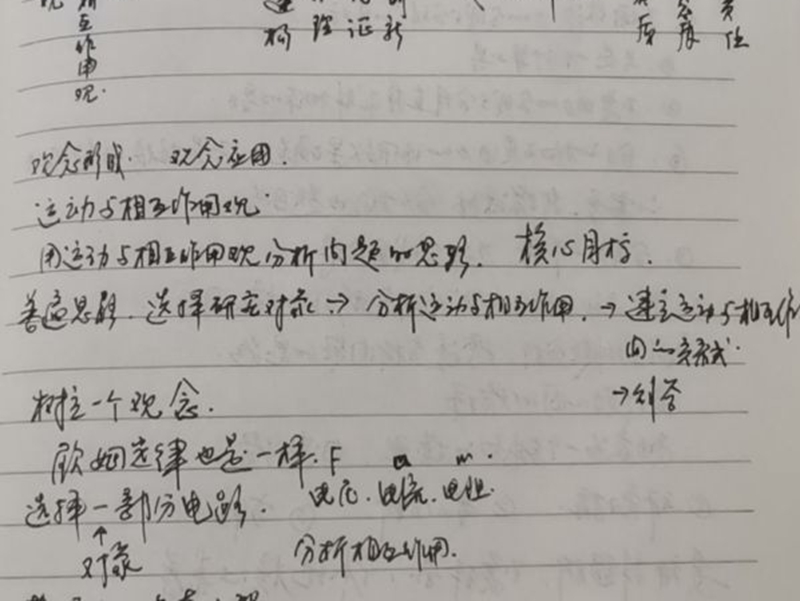 相互作用观.
构 理 证 新
质 展 责任
观念形成. 观念应用.
运动与相互作用观.
用运动与相互作用观分析问题的思路. 核心目标.
普遍思路. 选择研究对象 → 分析运动与相互作用. → 建立运动与相互作用
间的关系式.
→ 求解
树立一个观念.
欧姆定律也是一样. F a m.
选择一部分电路. 电压. 电流. 电阻.
↑
对象 分析相互作用.